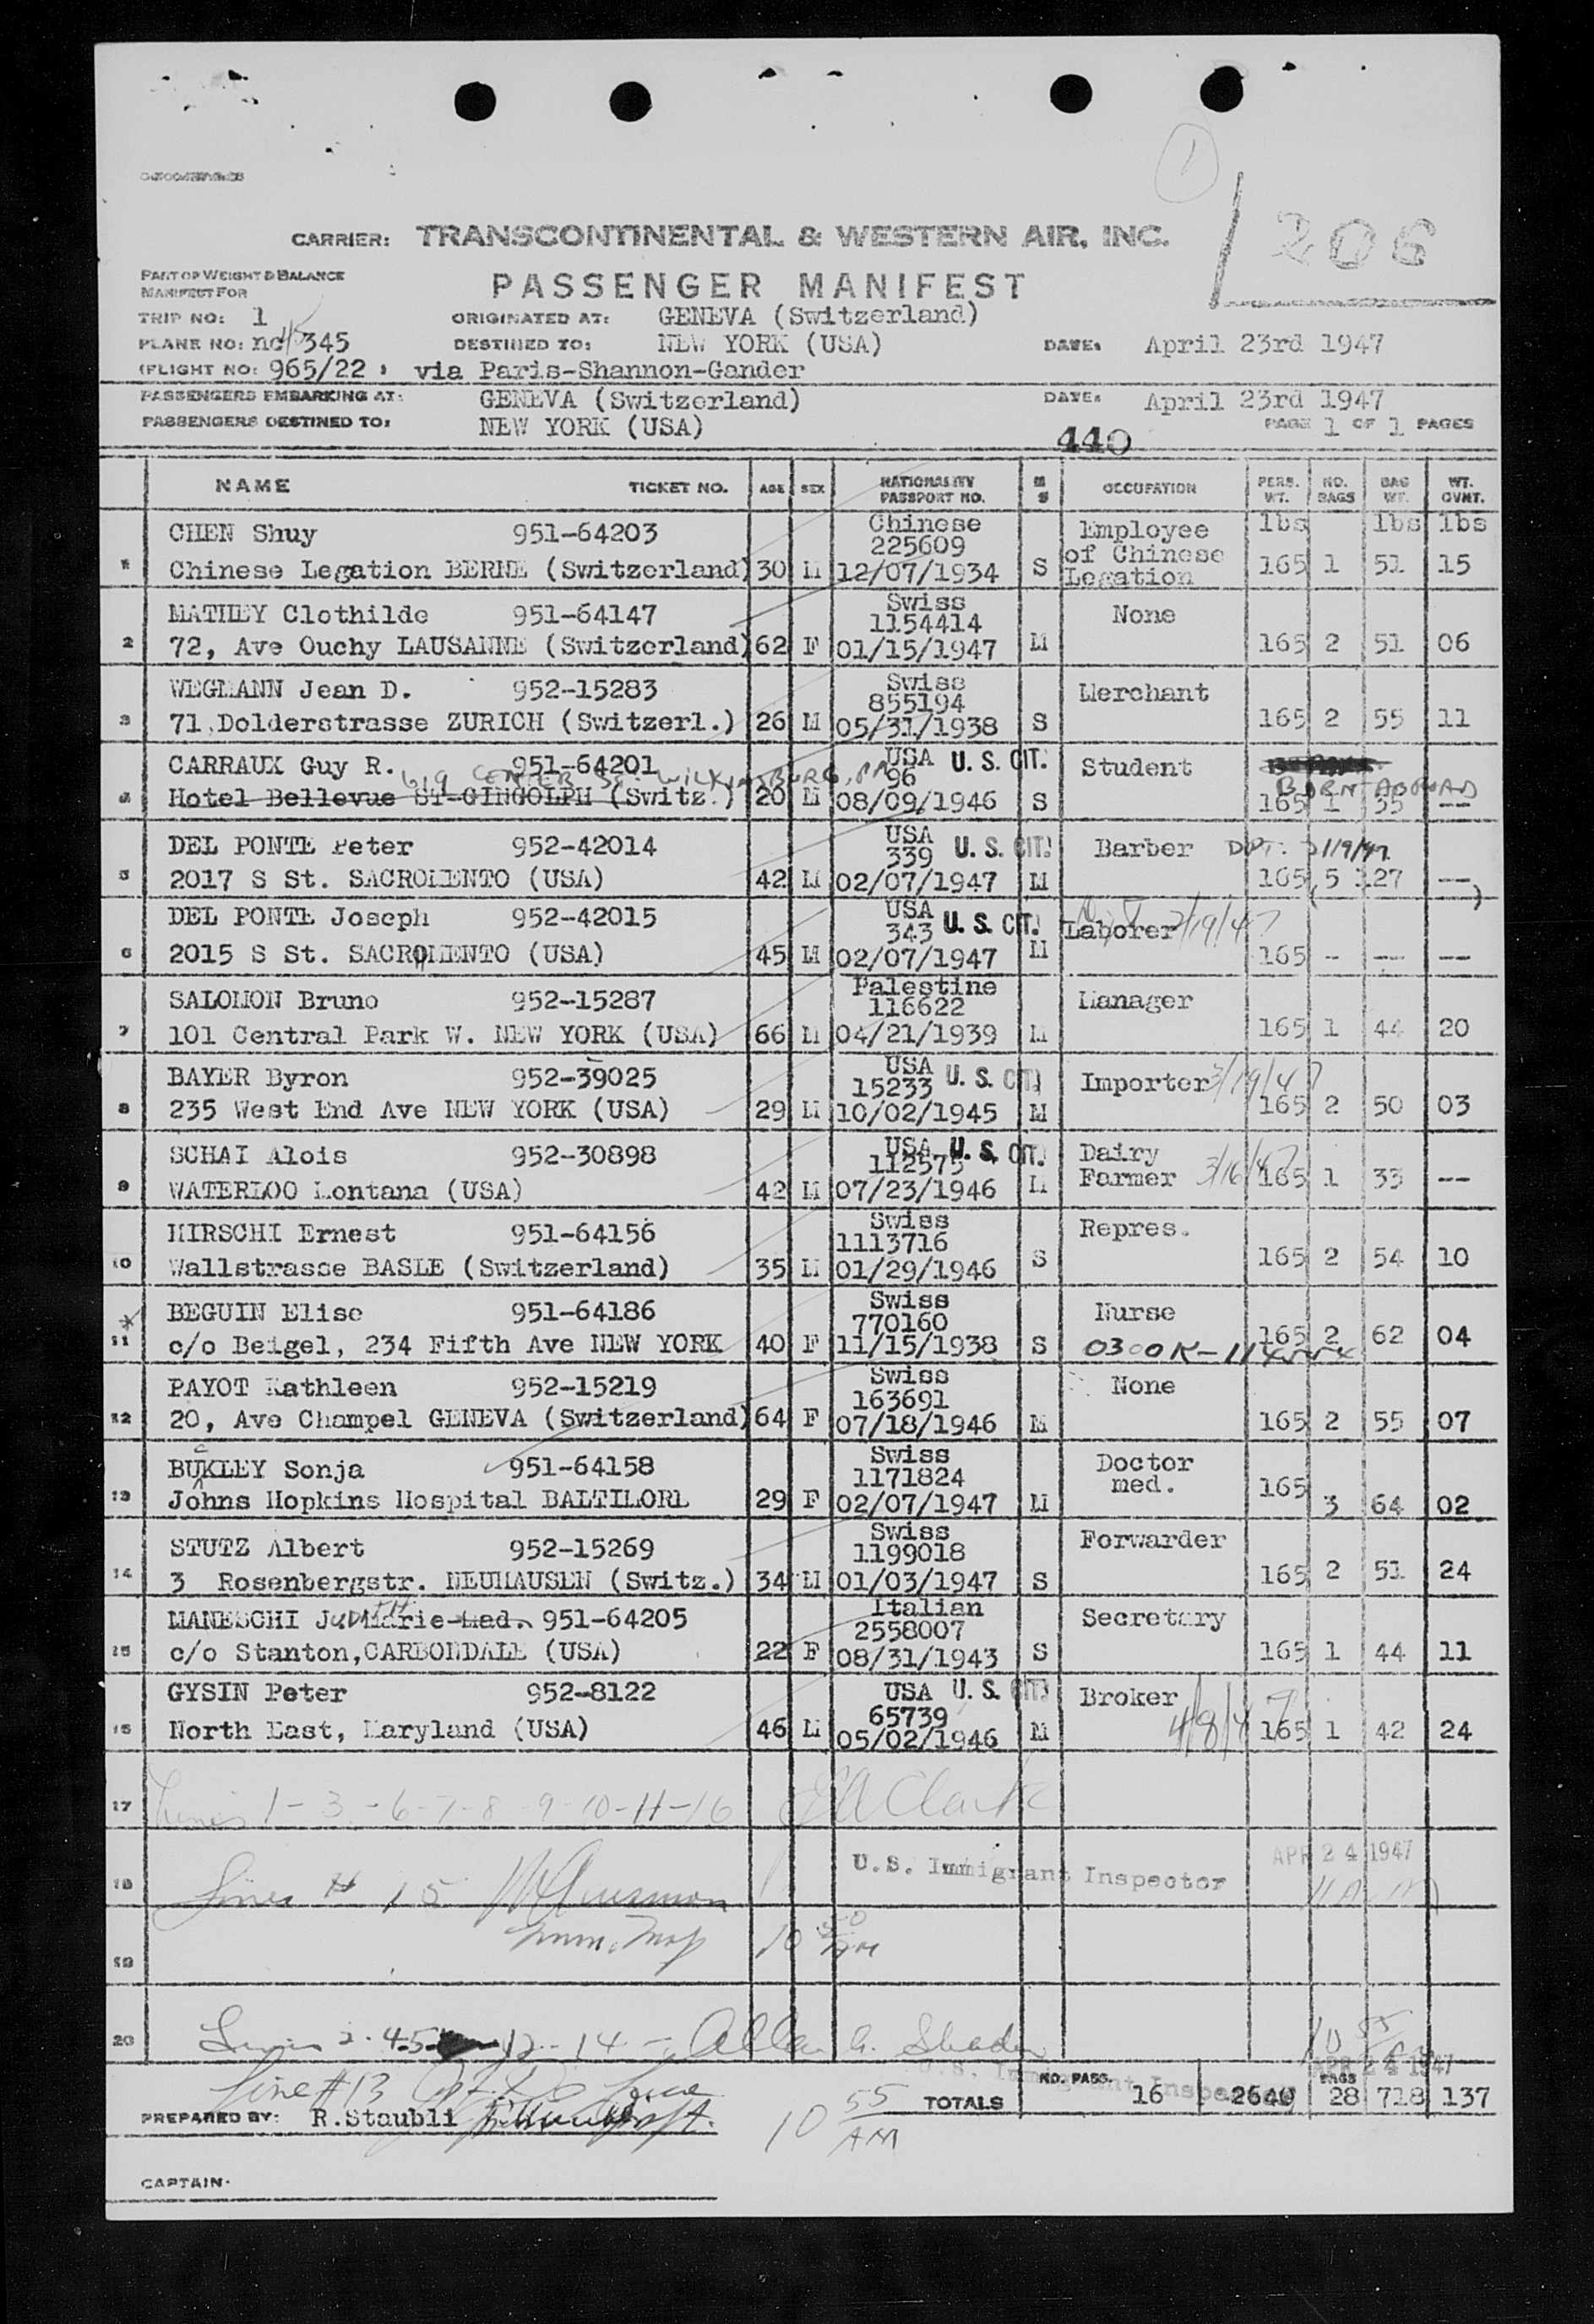 1
CARRIER: TRANSCONTINENTAL & WESTERN AIR, INC.
206
PART OF WEIGHT & BALANCE
MANIFEST FOR
PASSENGER MANIFEST
TRIP NO: 1 ORIGINATED AT: GENEVA (Switzerland)
PLANE NO: nc 345 DESTINED TO: NEW YORK (USA) DATE: April 23rd 1947
(FLIGHT NO: 965/22 ) via Paris-Shannon-Gander
PASSENGERS EMBARKING AT: GENEVA (Switzerland) DATE: April 23rd 1947
PASSENGERS DESTINED TO: NEW YORK (USA) PAGE 1 OF 1 PAGES
440
NAME TICKET NO. AGE SEX NATIONALITY PASSPORT NO. M S OCCUPATION PERS. WT. NO. BAGS BAG WT. WT. OVNT.
CHEN Shuy 951-64203 Chinese 225609 Employee lbs lbs lbs
1 Chinese Legation BERNE (Switzerland) 30 M 12/07/1934 S of Chinese Legation 165 1 51 15
MATHEY Clothilde 951-64147 Swiss 1154414 None
2 72, Ave Ouchy LAUSANNE (Switzerland) 62 F 01/15/1947 M 165 2 51 06
WEGMANN Jean D. 952-15283 Swiss 855194 Merchant
3 71,Dolderstrasse ZURICH (Switzerl.) 26 M 05/31/1938 S 165 2 55 11
CARRAUX Guy R. 951-64201 USA U. S. CIT. 96 Student
619 CENTER ST. WILKINSBURG, PA BORN ABROAD
4 Hotel Bellevue ST-GINGOLPH (Switz.) 20 M 08/09/1946 S 165 1 35 --
DEL PONTE Peter 952-42014 USA U. S. CIT. 339 Barber
5 2017 S St. SACROMENTO (USA) 42 M 02/07/1947 M 165 5 127 --
DEL PONTE Joseph 952-42015 USA U. S. CIT. 343 Laborer 2/19/47
6 2015 S St. SACROMENTO (USA) 45 M 02/07/1947 M 165 - -- --
SALOMON Bruno 952-15287 Palestine 116622 Manager
7 101 Central Park W. NEW YORK (USA) 66 M 04/21/1939 M 165 1 44 20
BAYER Byron 952-39025 USA U. S. CIT. 15233 Importer 3/19/47
8 235 West End Ave NEW YORK (USA) 29 M 10/02/1945 M 165 2 50 03
SCHAI Alois 952-30898 USA U. S. CIT. 112575 Dairy
9 WATERLOO Montana (USA) 42 M 07/23/1946 M Farmer 3/16/47 165 1 33 --
HIRSCHI Ernest 951-64156 Swiss 1113716 Repres.
10 Wallstrasse BASLE (Switzerland) 35 M 01/29/1946 S 165 2 54 10
BEGUIN Elise 951-64186 Swiss 770160 Nurse
11 c/o Beigel, 234 Fifth Ave NEW YORK 40 F 11/15/1938 S 165 2 62 04
PAYOT Kathleen 952-15219 Swiss 163691 None
12 20, Ave Champel GENEVA (Switzerland) 64 F 07/18/1946 M 165 2 55 07
BUKLEY Sonja 951-64158 Swiss 1171824 Doctor med.
13 Johns Hopkins Hospital BALTIMORE 29 F 02/07/1947 M 165 3 64 02
STUTZ Albert 952-15269 Swiss 1199018 Forwarder
14 3 Rosenbergstr. NEUHAUSEN (Switz.) 34 M 01/03/1947 S 165 2 51 24
MANESCHI Judith Marie-Mad. 951-64205 Italian 2558007 Secretary
15 c/o Stanton,CARBONDALE (USA) 22 F 08/31/1943 S 165 1 44 11
GYSIN Peter 952-8122 USA U. S. CIT. 65739 Broker 4/8/47
16 North East, Maryland (USA) 46 M 05/02/1946 M 165 1 42 24
17 Lines 1-3-6-7-8-9-10-11-16 Clark
18 Lines # 15 U.S. Immigrant Inspector APR 24 1947
19 10 50 AM
20 Lines 2-4-5 12-14 - Allan G. 10 55
U.S. Immigrant Inspector APR 24 1947
Line #13
NO. PASS. BAGS
TOTALS 16 2640 28 718 137
PREPARED BY: R.Staubli 10 55 AM
CAPTAIN: